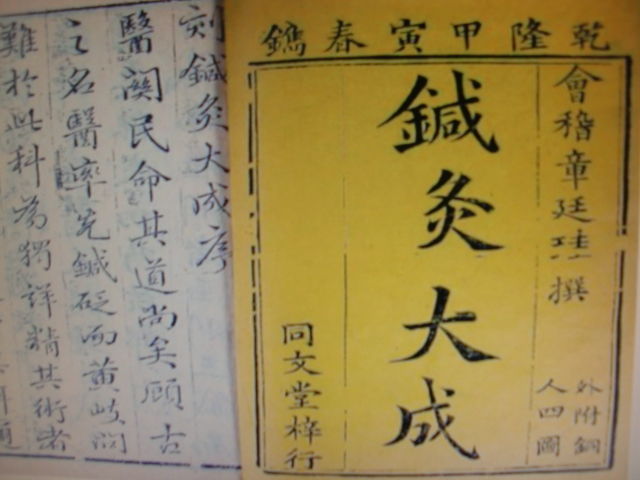 乾隆甲寅春鐫
會稽章廷珪撰
外附銅
人四圖
鍼灸大成
同文堂梓行
刻鍼灸大成序
醫關民命其道尚矣顧古
之名醫率先鍼砭而黃岐問
難於此科為獨詳精其術者